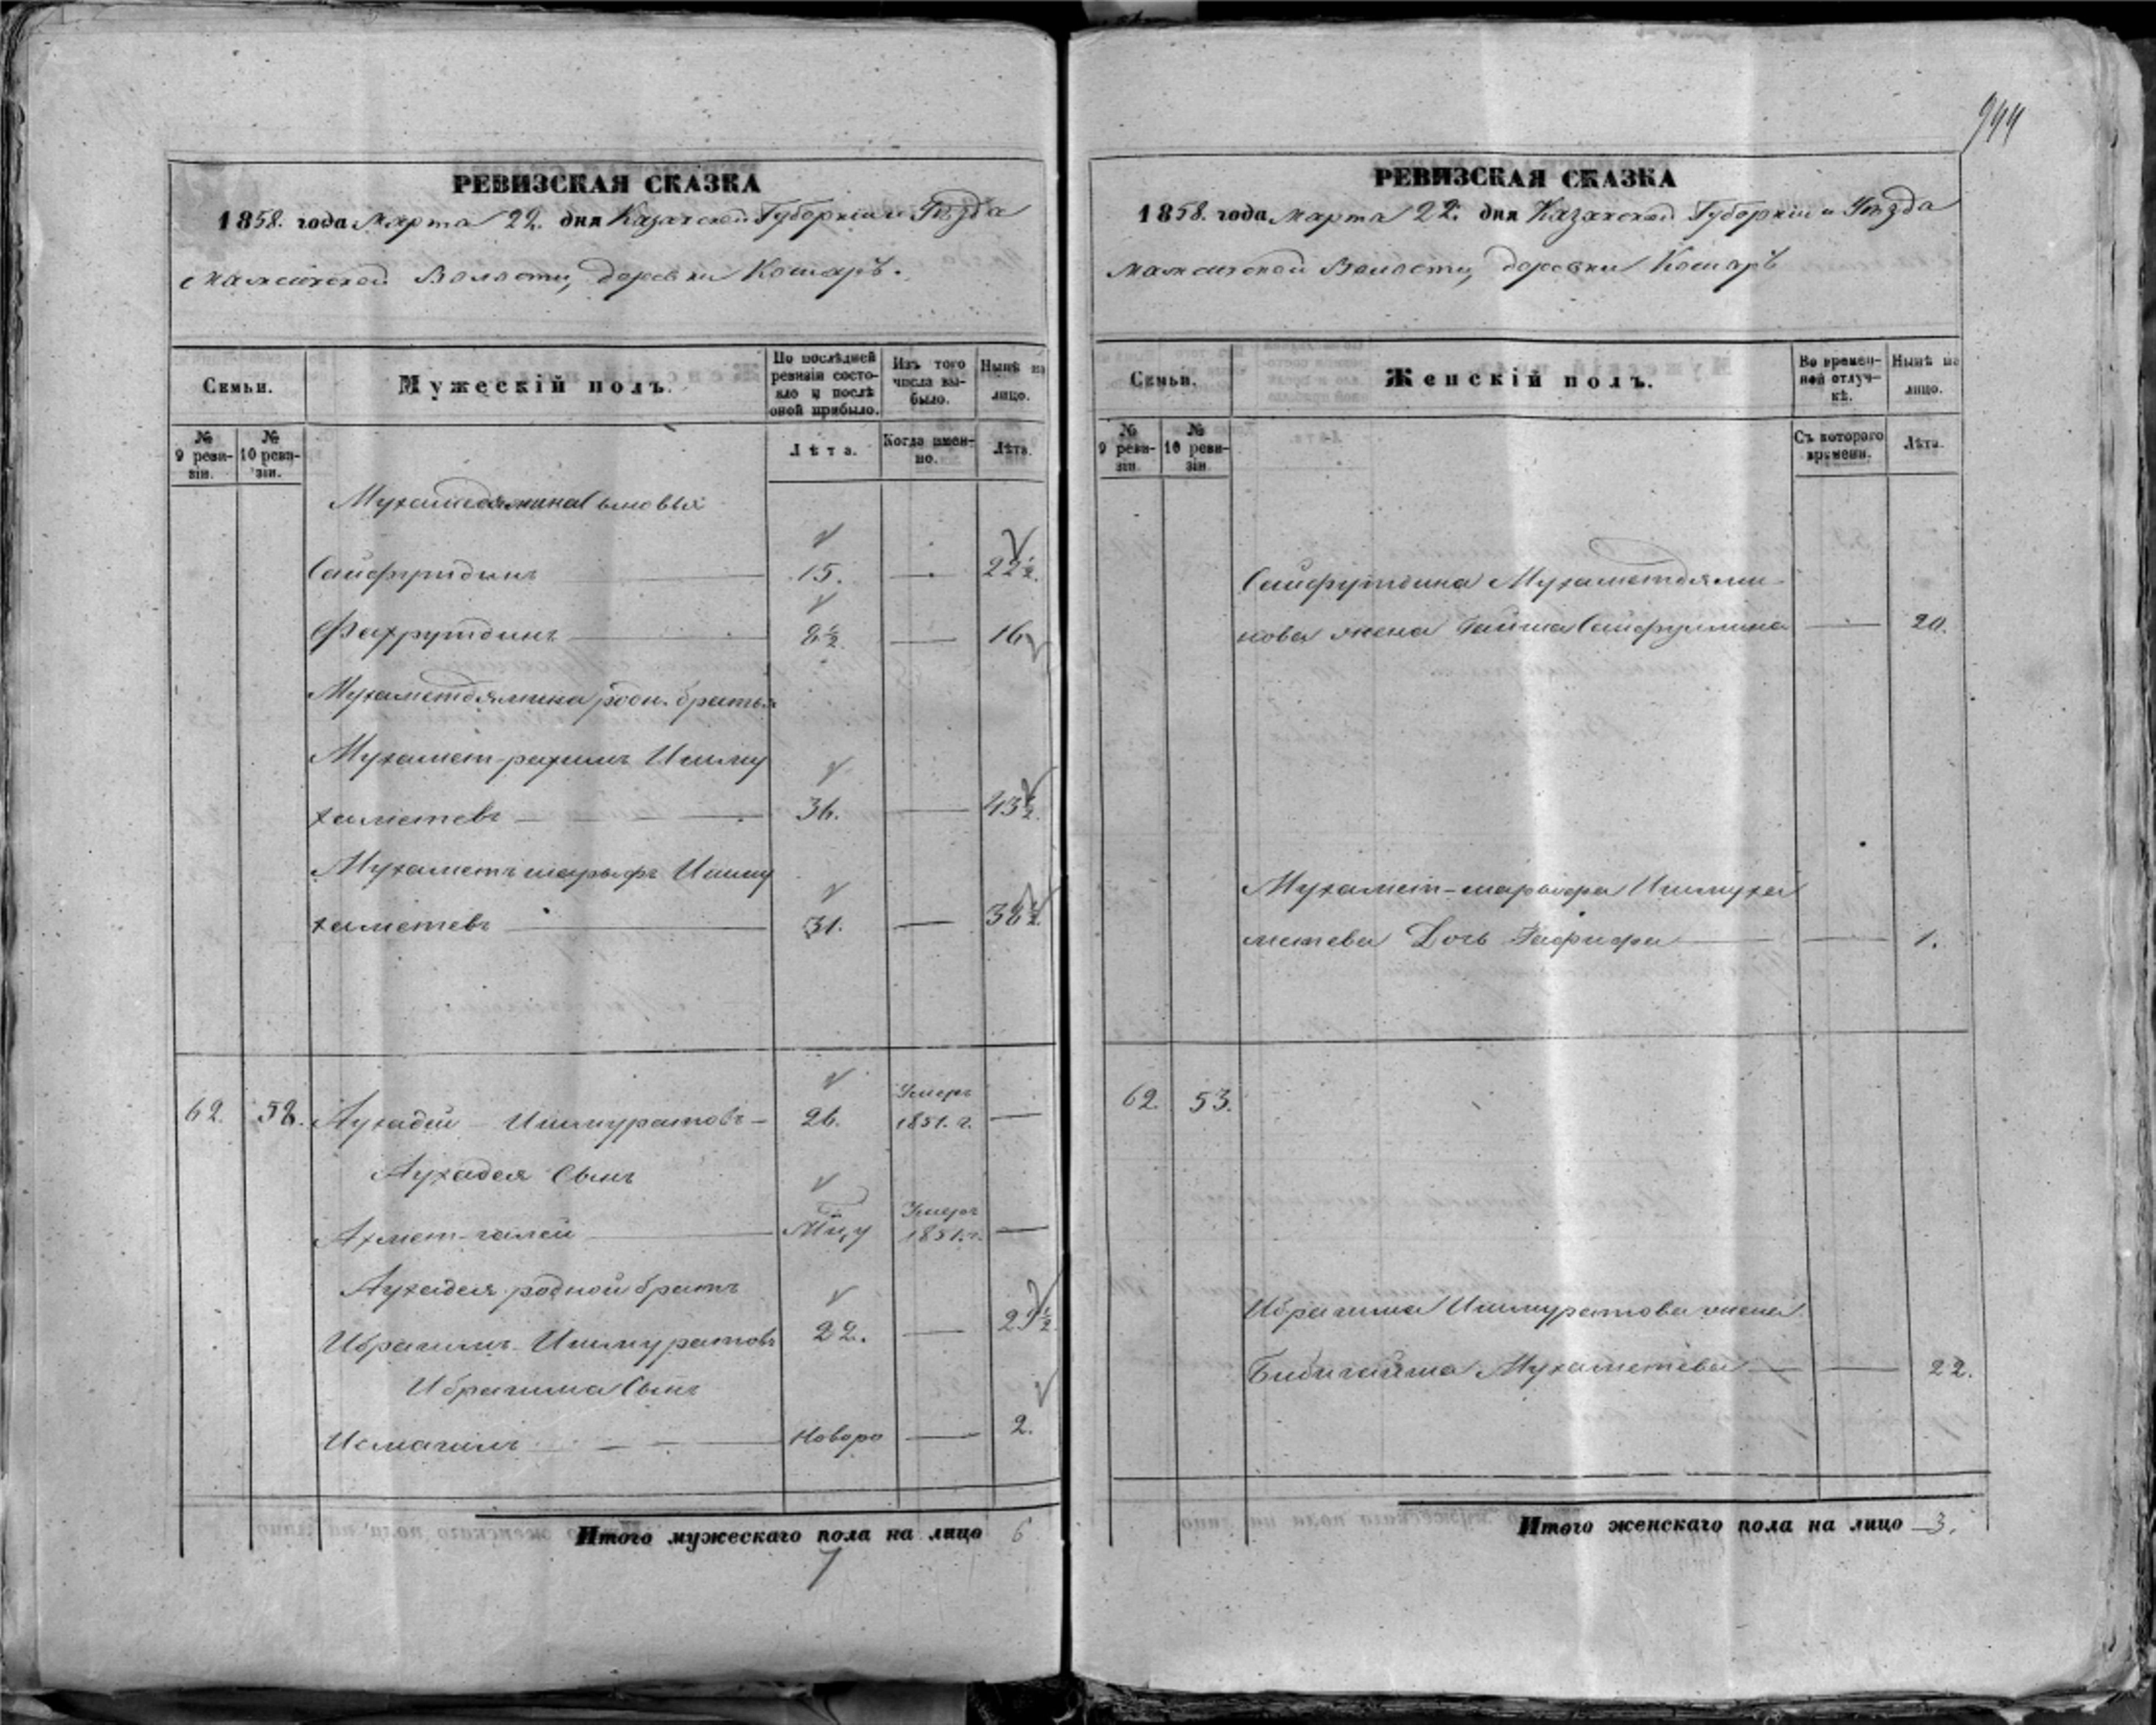 944
РЕВИЗСКАЯ СКАЗКА
1858. года Марта 22. дня Казанской Губерніи и Уѣзда
Мамсинской Волости, деревни Кошаръ.
Семьи.
Мужескій полъ.
По послѣдней ревизіи состояло и послѣ оной прибыло.
Изъ того числа выбыло.
Нынѣ на лицо.
№ 9 ревизіи.
№ 10 ревизіи.
Лѣта.
Когда именно.
Лѣта.
Сыновья
Сайфутдинъ 15. — 22½.
Фахрутдинъ 8½. — 16
Мухаметдямина родн. братья
Мухамет-рахимъ Ишму
хаметевъ 36. — 43½.
Мухаметъ шарыфъ Ишму
хаметевъ 31. — 38½.
62. 58. Ахадѣй Ишмуратовъ — 26. Умеръ 1851. г. —
Сынъ
Ахмет-галей Умеръ 1851. г. —
родной братъ
Ибрагимъ Ишмуратовъ 22. — 29½.
Ибрагима Сынъ
Исмагилъ — Новоро — 2.
Итого мужескаго пола на лицо 6
7
РЕВИЗСКАЯ СКАЗКА
1858. года Марта 22. дня Казанской Губерніи и Уѣзда
Мамсинской Волости, деревни Кошаръ
Семьи.
Женскій полъ.
Во временной отлучкѣ.
Нынѣ на лицо.
№ 9 ревизіи
№ 10 ревизіи
Съ котораго времени.
Лѣта.
Сайфутдина Мухаметдями-
нова жена Гайша Сайфуллина — 20.
Мухамет-шарыфа Ишмуха
метева Дочь Гафифа — 1.
62. 53.
Ибрагима Ишмуратова жена
Бибигайша Мухаметева — 22.
Итого женскаго пола на лицо 3.